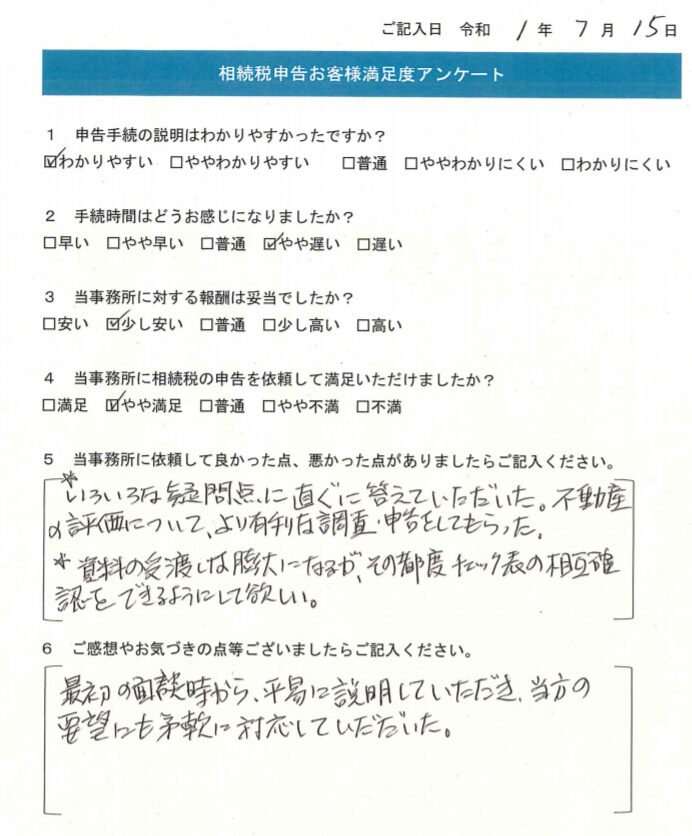 ご記入日 令和 1 年 7 月 15日
相続税申告お客様満足度アンケート
1 申告手続の説明はわかりやすかったですか?
☑わかりやすい □ややわかりやすい □普通 □ややわかりにくい □わかりにくい
2 手続時間はどうお感じになりましたか?
□早い □やや早い □普通 ☑やや遅い □遅い
3 当事務所に対する報酬は妥当でしたか?
□安い ☑少し安い □普通 □少し高い □高い
4 当事務所に相続税の申告を依頼して満足いただけましたか?
□満足 ☑やや満足 □普通 □やや不満 □不満
5 当事務所に依頼して良かった点、悪かった点がありましたらご記入ください。
*いろいろな疑問点に直ぐに答えていただいた。不動産
の評価について、より有利な調査・申告をしてもらった。
*資料の受渡しは膨大になるが、その都度チェック表の相互確
認をできるようにして欲しい。
6 ご感想やお気づきの点等ございましたらご記入ください。
最初の面談時から、平易に説明していただき、当方の
要望にも柔軟に対応していただいた。